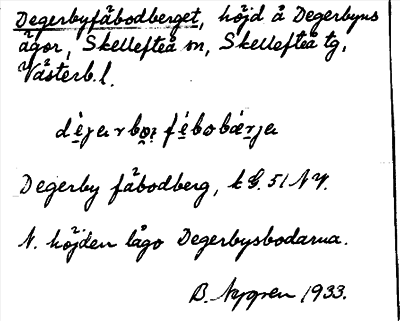 Degerbyfäbodberget, höjd å Degerbyns
ägor, Skellefteå sn, Skellefteå tg,
Västerb. l.
Degerby fäbodberg, k G. 51 N V.
N. höjden lågo Degerbysbodarna.
B. Nygren 1933.